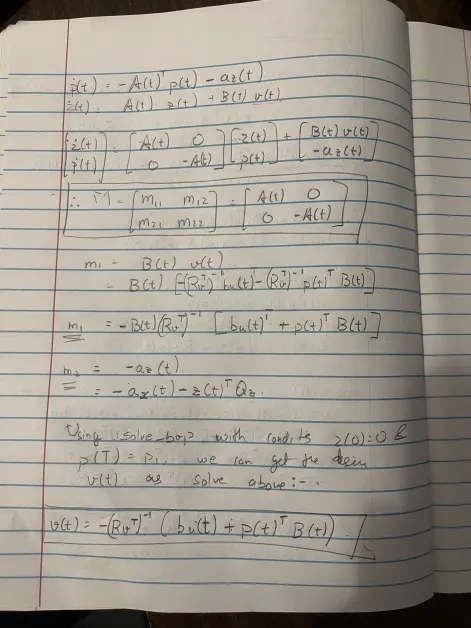 ṗ(t) = -A(t)ᵀ p(t) - a_z(t)
ż(t) A(t) z(t) + B(t) v(t)
[ż(t) ; ṗ(t)] = [A(t) 0 ; 0 -A(t)] [z(t) ; p(t)] + [B(t) v(t) ; -a_z(t)]
∴ M = [m₁₁ m₁₂ ; m₂₁ m₂₂] = [A(t) 0 ; 0 -A(t)]
m₁ = B(t) v(t)
= B(t) [-(Rᵥᵀ)⁻¹ bu(t)ᵀ - (Rᵥᵀ)⁻¹ p(t)ᵀ B(t)]
m₁ = -B(t)(Rᵥᵀ)⁻¹ [bu(t)ᵀ + p(t)ᵀ B(t)]
m₂ = -a_z(t)
= -a_x(t) - z(t)ᵀ Q_z.
Using solve_bvp with condits z(0)=0 &
p(T) = P₁, we can get the
v(t) as solve above:-.
v(t) = -(Rᵥᵀ)⁻¹ (bu(t) + p(t)ᵀ B(t))